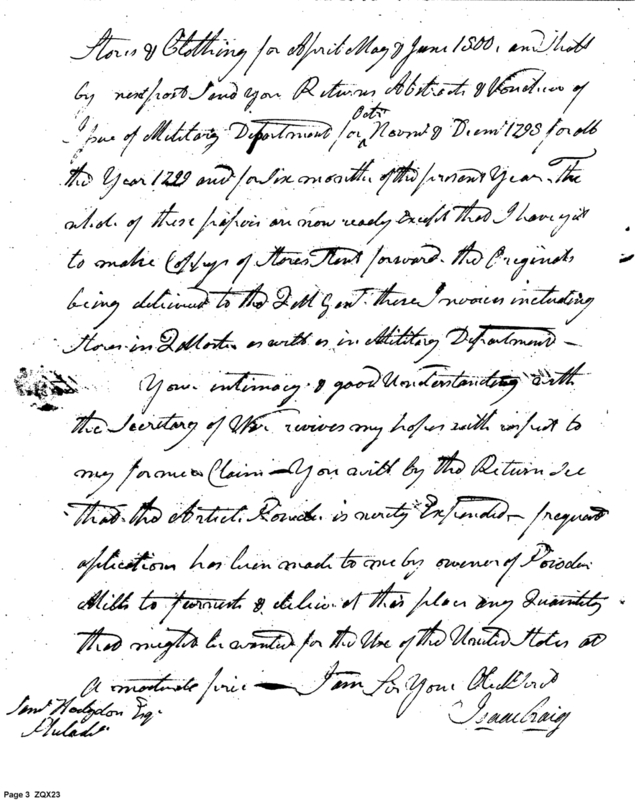 Stores & Clothing for April May & June 1800. and shall
by next post send you Returns Abstracts & Vouchers of
Issue of Military Department for Octr. Novmr. & Decmr. 1798 for all
the Year 1799 and for six months of the present Year. The
whole of these papers are now ready Except that I have yet
to make Copys of Stores Sent forward the Originals
being delivered to the Q M Genl. these Invoices including
Stores in Q Mastr. as well as in Military Department —
Your intimacy & good Understanding with
the Secretary of War revives my hopes with respect to
my former Claim — You will by the Return See
that the Article Powder is nearly Expended — frequent
applications has been made to me by owners of Powder
Mills to furnish & deliver at this place any Quantity
that might be wanted for the Use of the United States at
a moderate price — I am Sir Your Obed
Isaac Craig
Saml. Hodgdon Esq.
Philada.
Page 3 ZQX23